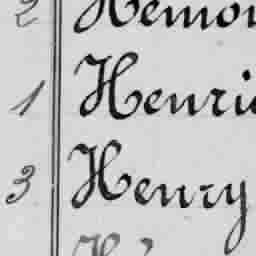 2 Hemon
1 Henri
3 Henry